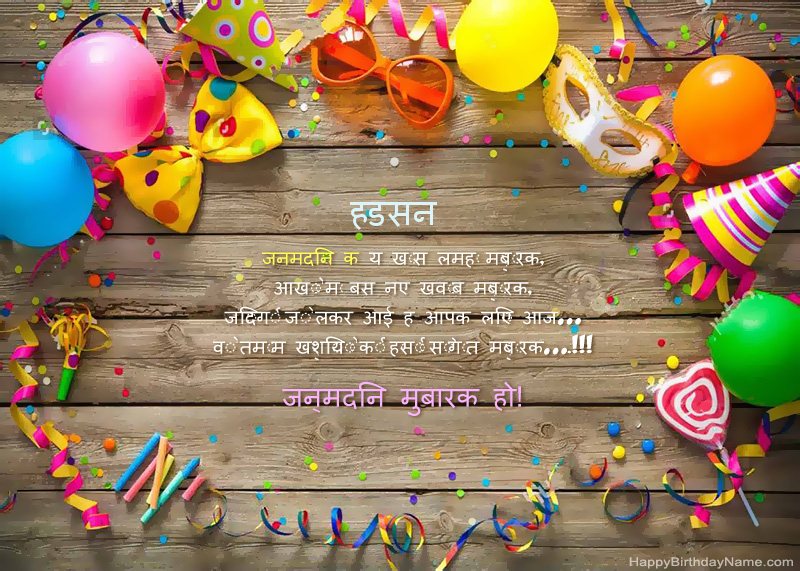 हडसन
जनमदनि क य खास लमहा मबारक,
आखों में बस नए खवाब मबारक,
जदिगी जो लेकर आई ह आपक लएि आज...
वो तमाम खुशयिों की हसीं सौगात मबारक...!!!
जन्मदनि मुबारक हो!
HappyBirthdayName.com